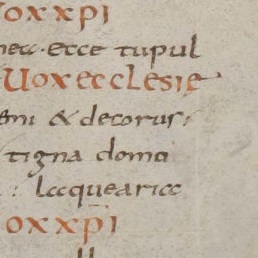 Uox xp̄i
mea· ecce tu pul
Uox ecclesie
eni & decorus·
tigna domo
laquearia
ox xp̄i